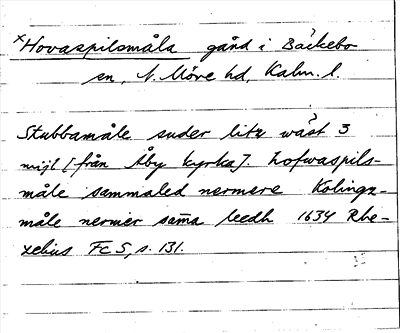 ×Hovaspilsmåla gård i Bäckebo
sn, N. Möre hd, Kalm. l.
Stubbamåle suder litz wäst 3
mijl [från Åby kyrka]. hofwaspils-
måle sammaled nermere Kölingz-
måle nermer sam̄a leedh 1634 Rhe-
zelius FcS, s. 131.